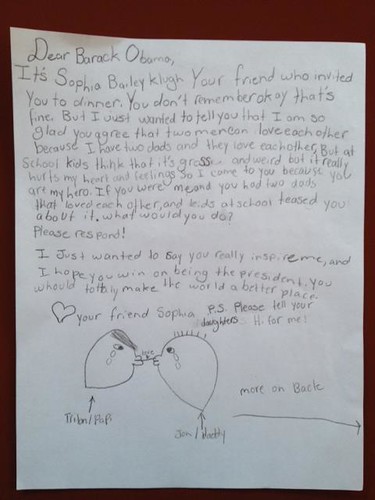 Dear Barack Obama,
It's Sophia Bailey Klugh Your friend who invited
You to dinner. You don't remember okay that's
fine. But I Just wanted to tell you that I am so
glad you agree that two men can love each other
because I have two dads and they love each other. But at
School kids think that it's gross and weird but it really
hurts my heart and feelings. So I come to you because you
are my hero. If you were me and you had two dads
that loved each other, and kids at school teased you
about it, what would you do?
Please respond!
I Just wanted to say you really inspire me, and
I hope you win on being the president. You
whould totally make the world a better place.
your friend Sophia
P.S. Please tell your
daughters Hi for me!
love
more on Back
Jon/daddy